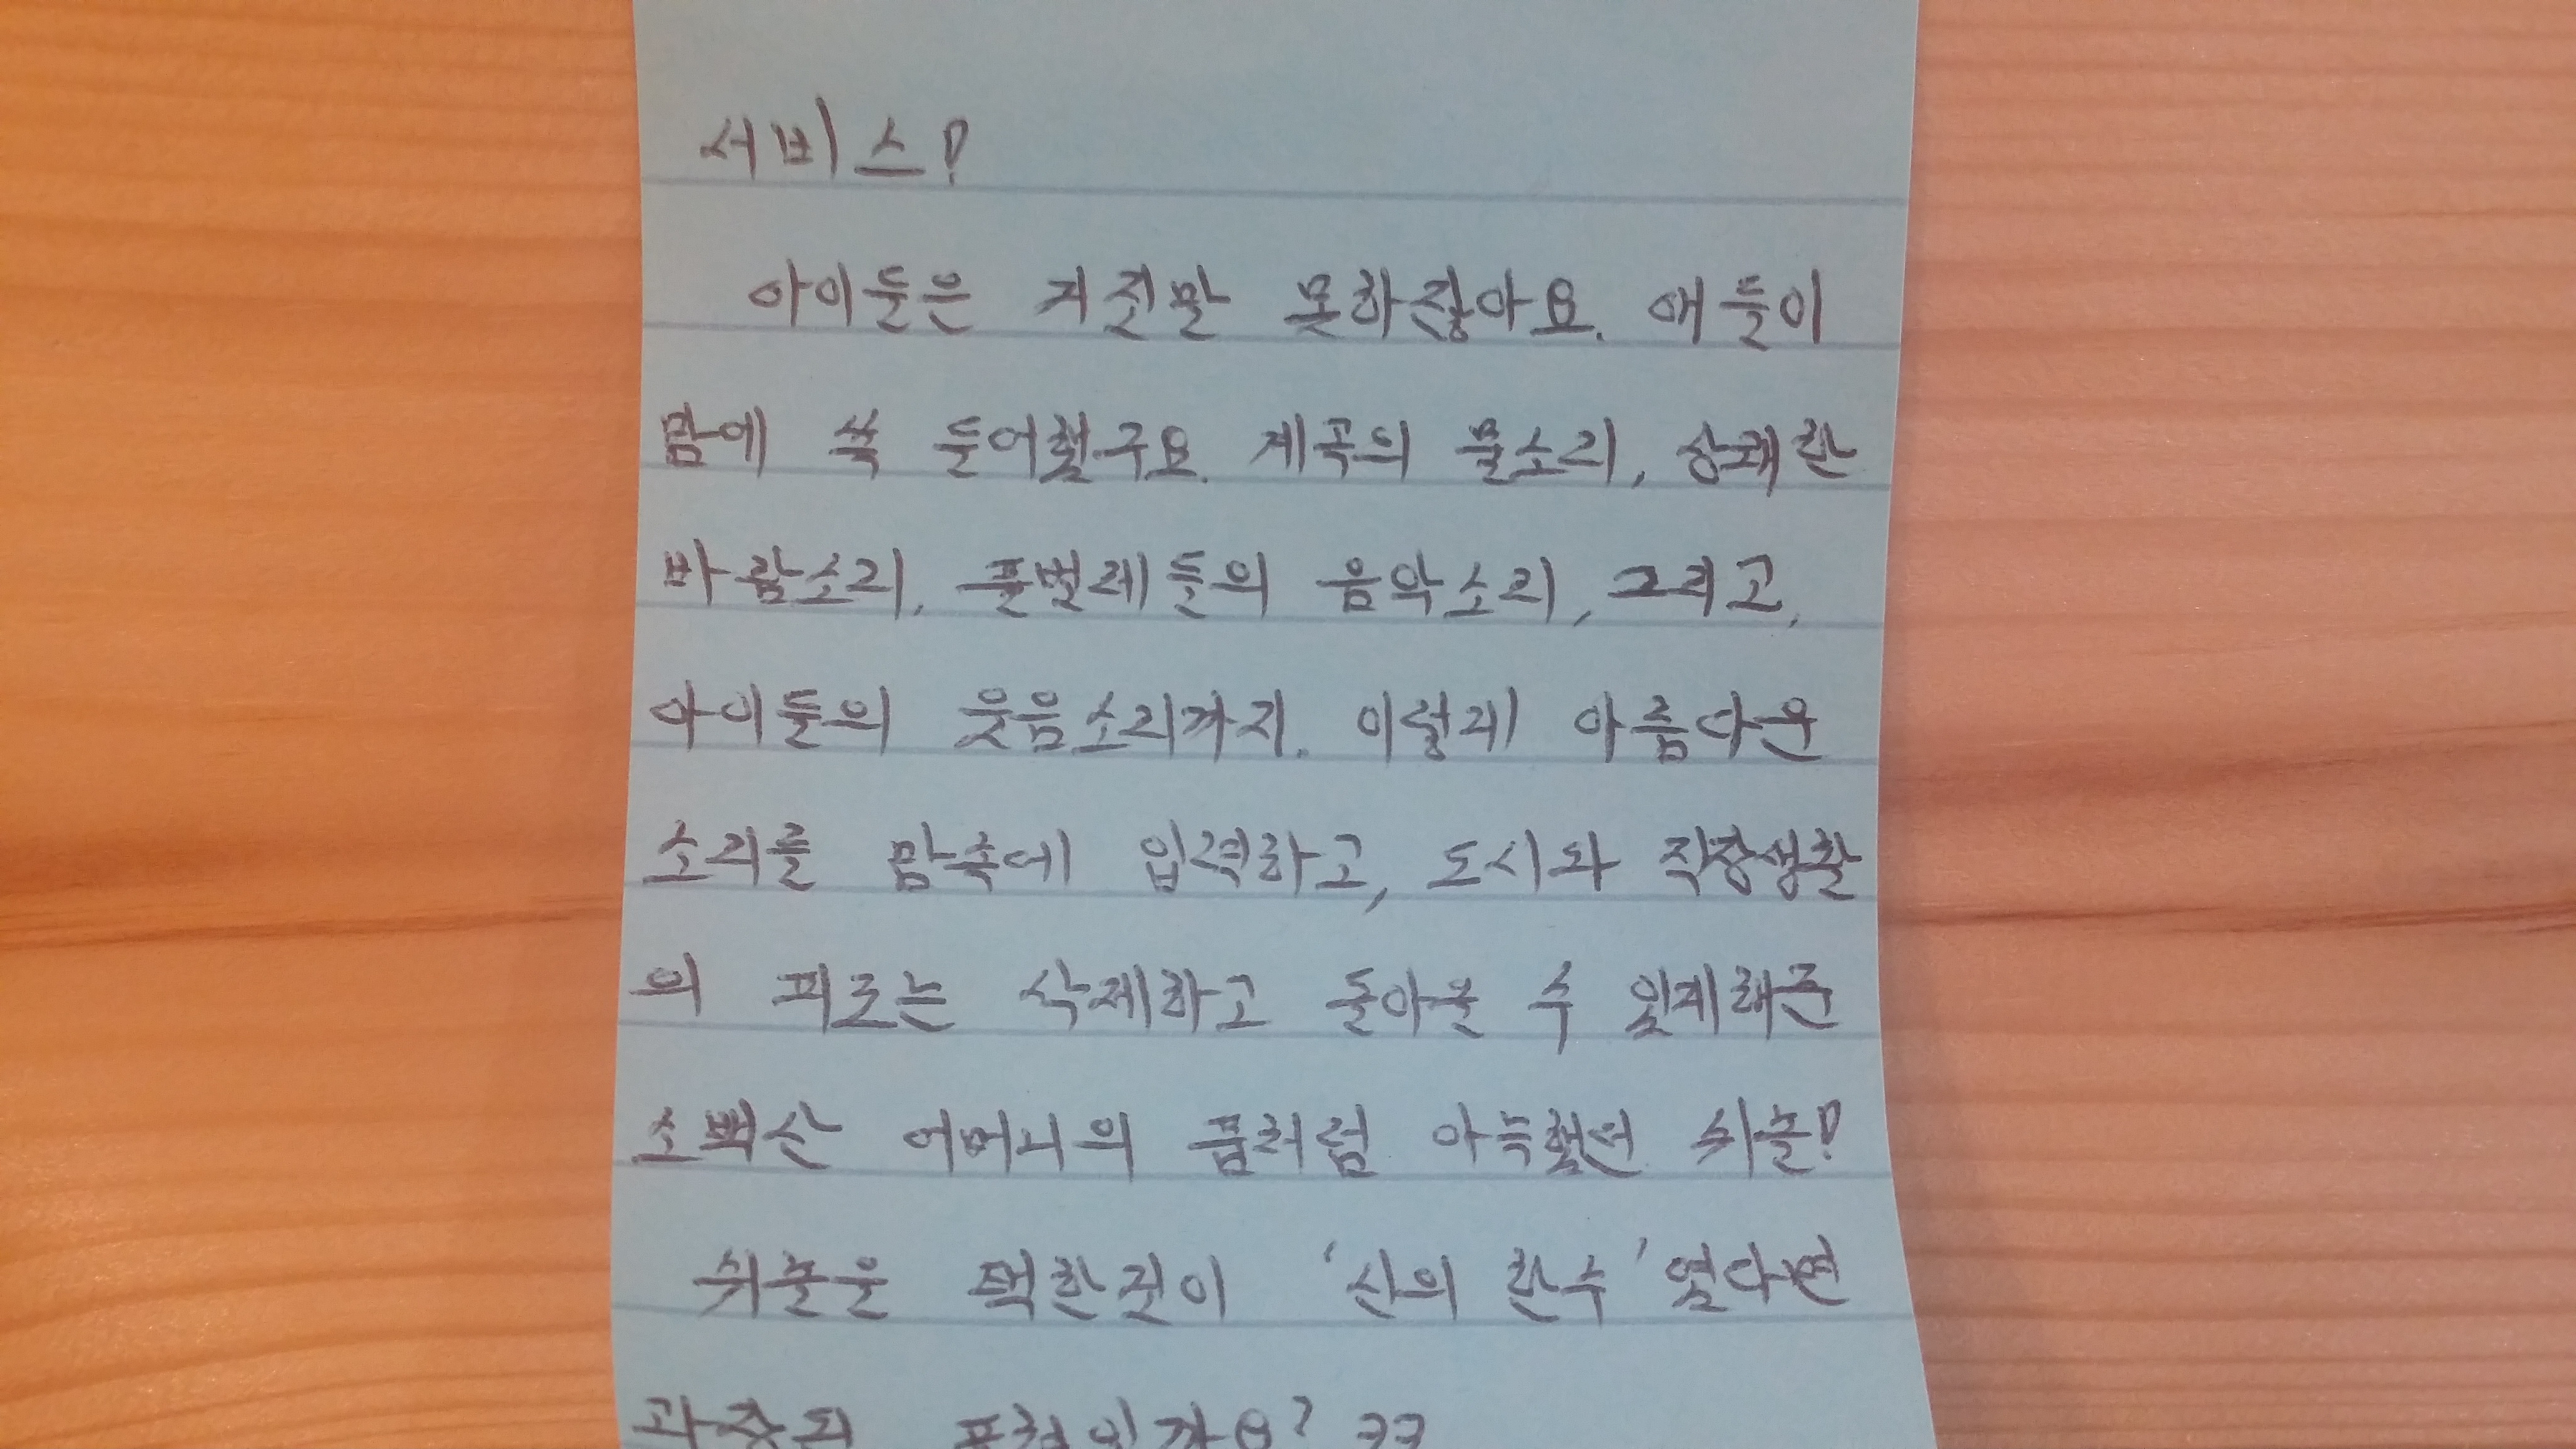 서비스!
아이들은 거짓말 못하잖아요. 애들이
맘에 쏙 들어했구요. 계곡의 물소리, 상쾌한
바람소리, 풀벌레들의 음악소리, 그리고,
아이들의 웃음소리까지. 이렇게 아름다운
소리를 맘속에 입력하고, 도시와 직장생활
의 피로는 삭제하고 돌아올 수 있게해준
소백산 어머니의 품처럼 아늑했던 쉬놀!
쉬놀을 택한것이 '신의 한수'였다면
과장된 표현일까요? ㅋㅋ